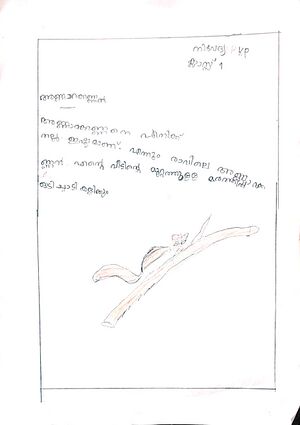 നിവേദ്യ കെ.പി
ക്ലാസ്സ് 1
അണ്ണാറക്കണ്ണൻ
അണ്ണാറക്കണ്ണനെ എനിക്ക്
നല്ല ഇഷ്ടമാണ്. എന്നും രാവിലെ അണ്ണാ
ണ്ണൻ എന്റെ വീടിന്റെ മുറ്റത്തുള്ള
ഓടി ചാടി കളിക്കും